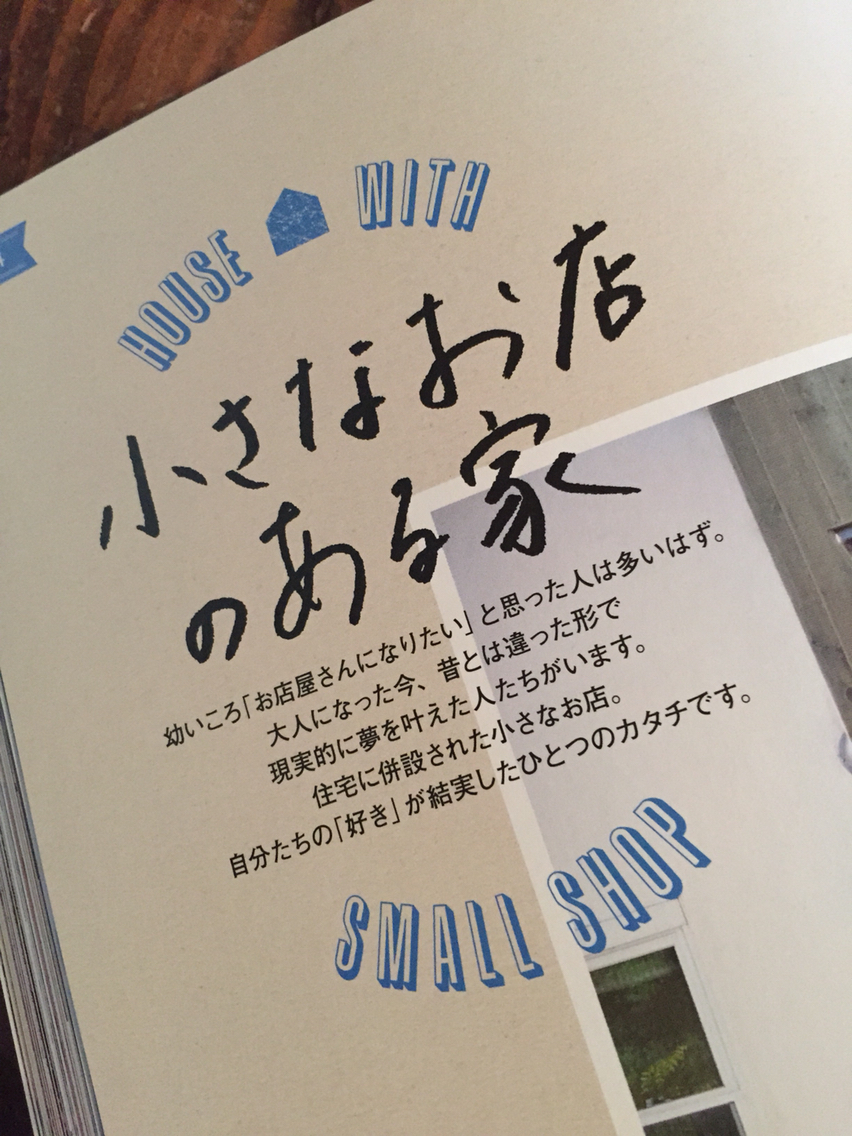 HOUSE WITH
小さなお店
のある家
幼いころ「お店屋さんになりたい」と思った人は多いはず。
大人になった今、昔とは違った形で
現実的に夢を叶えた人たちがいます。
住宅に併設された小さなお店。
自分たちの「好き」が結実したひとつのカタチです。
SMALL SHOP